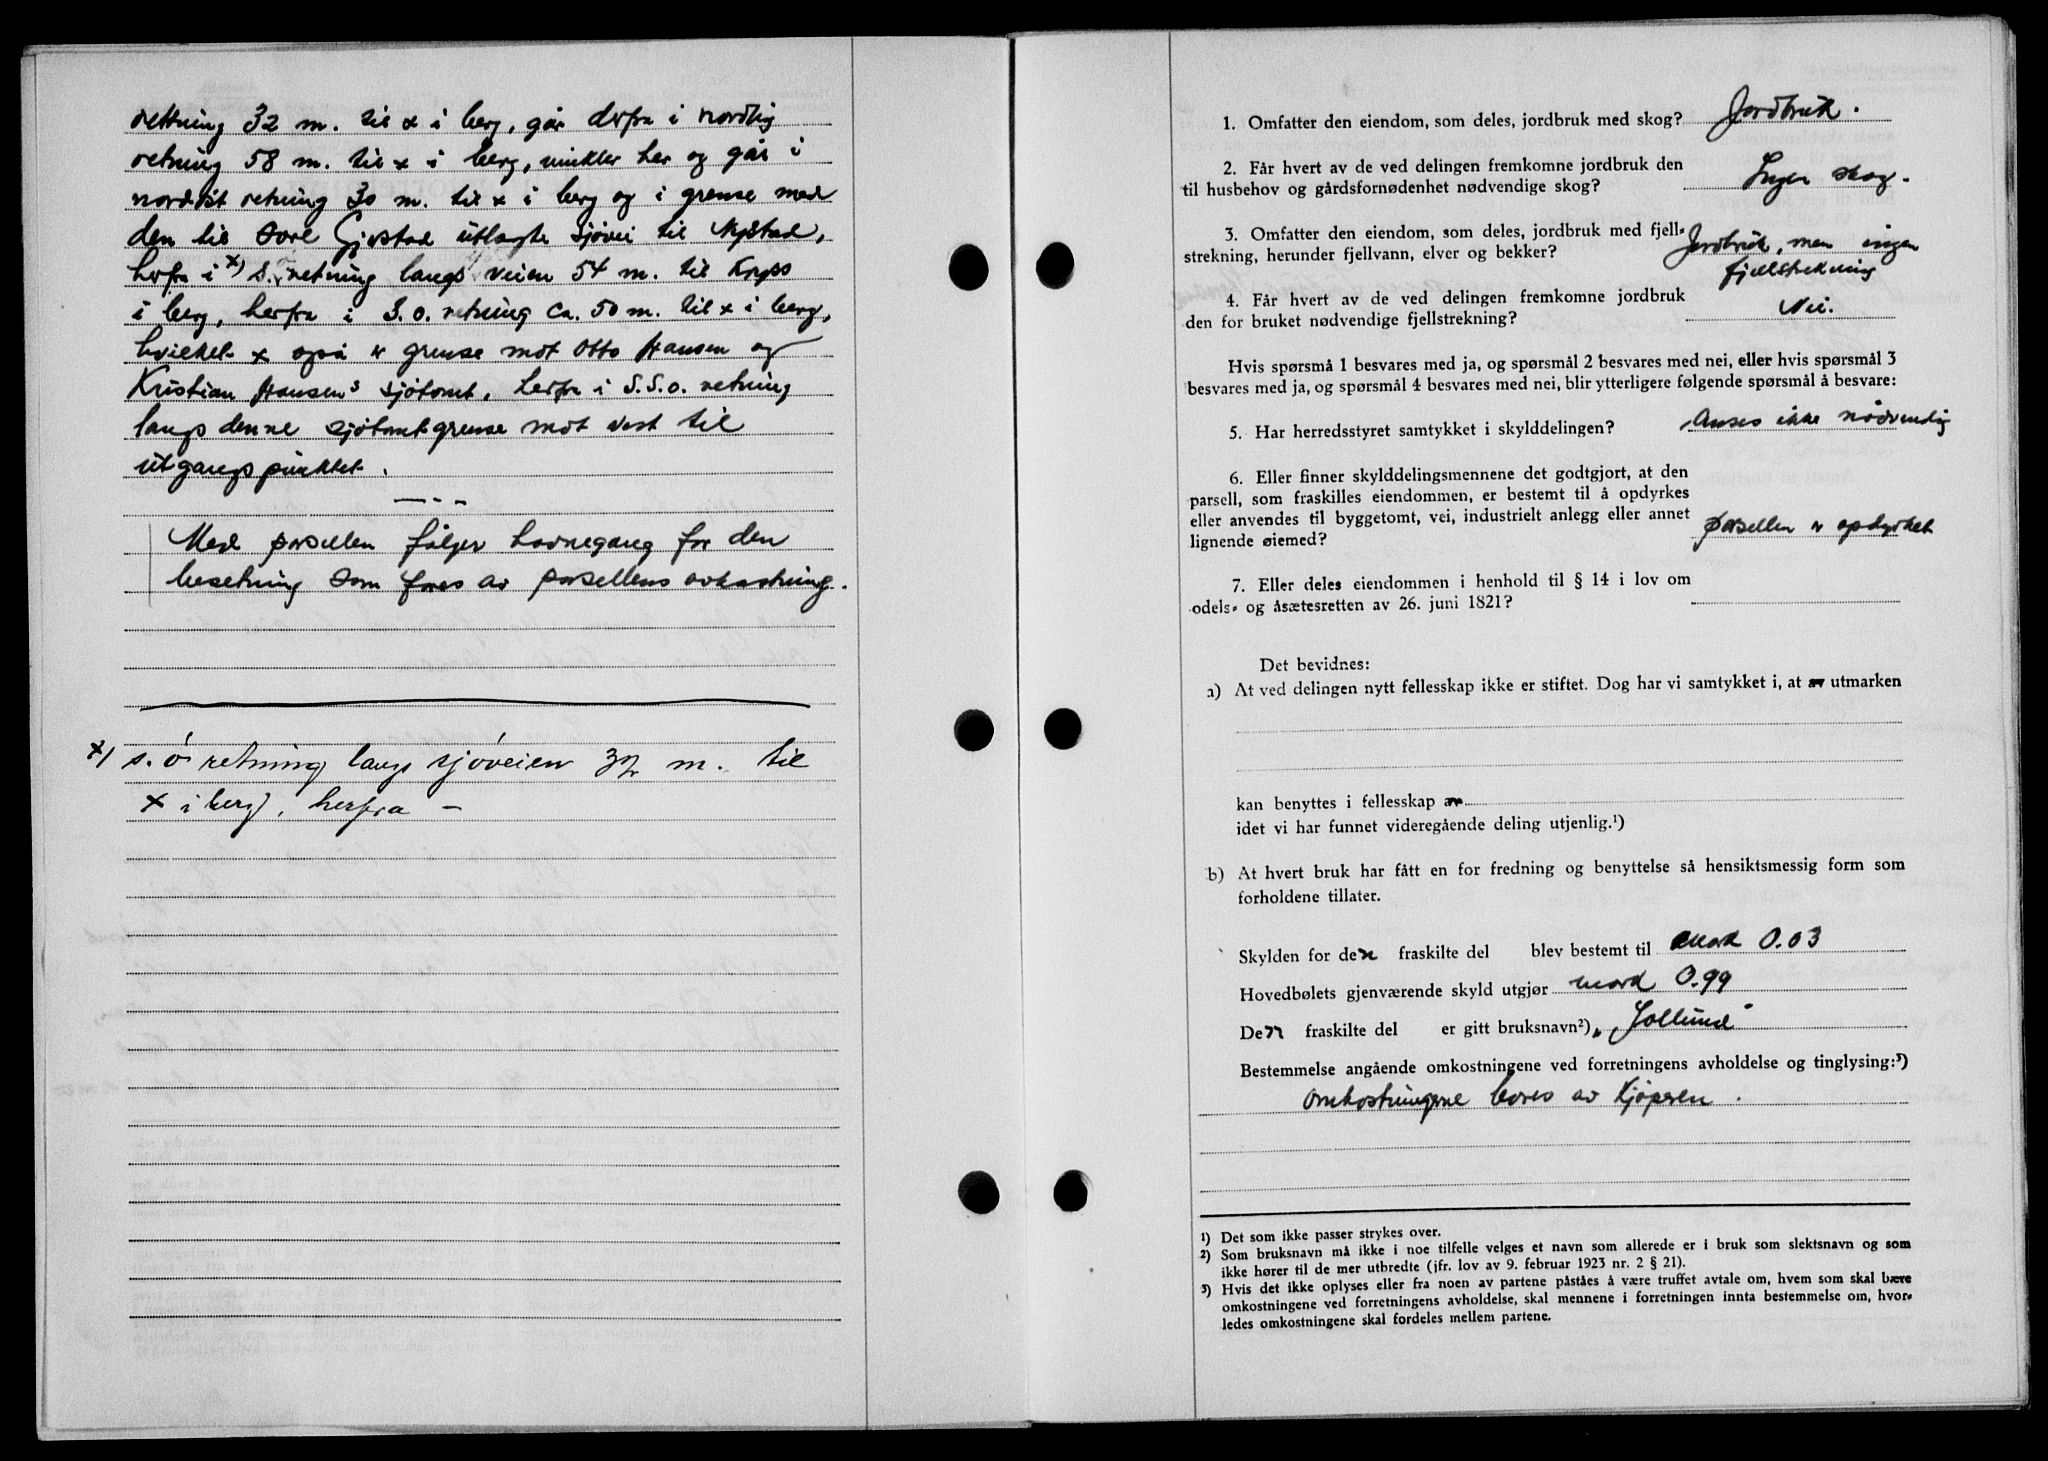 retning 32 m. til x i berg, går derfra i nordlig
retning 58 m. til x i berg, vinkler her og går i
nordøst retning 30 m. til x i berg og i grense med
den til Tore Gjestad utlagte sjøvei til Nystad,
herfra i x) S. retning langs veien 54 m. til kryss
i berg, herfra i S.o. retning ca. 50 m. til x i berg,
hvilket x også er grense mot Otto Hansen og
Kristian Hansens sjøtomt, herfra i S.S.o. retning
langs denne sjøtomt grense mot vest til
utgangspunktet.
Med parsellen følger havnegang for den
besetning som fores av parsellens avkastning.
x) s.ø retning langs sjøveien 32 m. til
x i berg, herfra –
1. Omfatter den eiendom, som deles, jordbruk med skog? Jordbruk.
2. Får hvert av de ved delingen fremkomne jordbruk den
til husbehov og gårdsfornødenhet nødvendige skog? Ingen skog.
3. Omfatter den eiendom, som deles, jordbruk med fjell-
strekning, herunder fjellvann, elver og bekker? Jordbruk, men ingen
fjellstrekning
4. Får hvert av de ved delingen fremkomne jordbruk
den for bruket nødvendige fjellstrekning? Nei.
Hvis spørsmå 1 besvares med ja, og spørsmål 2 besvares med nei, eller hvis spørsmål 3
besvares med ja, og spørsmål 4 besvares med nei, blir ytterligere følgende spørsmål å besvare:
5. Har herredsstyret samtykket i skylddelingen? Anses ikke nødvendig
6. Eller finner skylddelingsmennene det godtgjort, at den
parsell, som fraskilles eiendommen, er bestemt til å opdyrkes
eller anvendes til byggetomt, vei, industrielt anlegg eller annet
lignende øiemed? parsellen er opdyrket
7. Eller deles eiendommen i henhold til § 14 i lov om
odels- og åsætesretten av 26. juni 1821?
Det bevidnes:
a) At ved delingen nytt fellesskap ikke er stiftet. Dog har vi samtykket i, at av utmarken
kan benyttes i fellesskap av
idet vi har funnet videregående deling utjenlig.¹)
b) At hvert bruk har fått en for fredning og benyttelse så hensiktsmessig form som
forholdene tillater.
Skylden for den fraskilte del blev bestemt til mark 0.03
Hovedbølets gjenværende skyld utgjør mark 0.99
Den fraskilte del er gitt bruksnavn²) „Sollund"
Bestemmelse angående omkostningene ved forretningens avholdelse og tinglysing:³)
Omkostningene bæres av kjøperen.
¹) Det som ikke passer strykes over.
²) Som bruksnavn må ikke i noe tilfelle velges et navn som allerede er i bruk som slektsnavn og som
ikke hører til de mer utbredte (jfr. lov av 9. februar 1923 nr. 2 § 21).
³) Hvis det ikke oplyses eller fra noen av partene påståes å være truffet avtale om, hvem som skal bære
omkostningene ved forretningens avholdelse, skal mennene i forretningen innta bestemmelse om, hvor-
ledes omkostningene skal fordeles mellem partene.